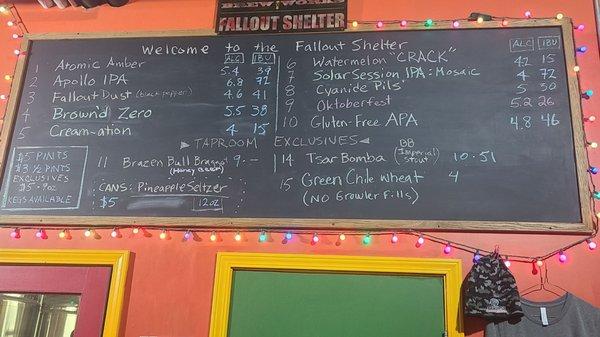 BREW WORKS
FALLOUT SHELTER
Welcome to the Fallout Shelter
ALC IBU
1 Atomic Amber 5.4 39
2 Apollo IPA 6.8 72
3 Fallout Dust (black pepper) 4.6 41
4 Brown'd Zero 5.5 38
5 Cream-ation 4 15
ALC IBU
6 Watermelon "CRACK" 4.2 15
7 Solar Session IPA: Mosaic 4 72
8 Cyanide Pils' 5 50
9 Oktoberfest 5.2 26
10 Gluten-Free APA 4.8 46
TAPROOM EXCLUSIVES
$5 PINTS
$3 1/2 PINTS
EXCLUSIVES
$5 - 9oz
KEGS AVAILABLE
11 Brazen Bull Bragget 9 -
(Honey Beer)
CANS: Pineapple Seltzer
$5 12oz
14 Tsar Bomba (BB Imperial Stout) 10 - 51
15 Green Chile Wheat 4
(NO Growler Fills)